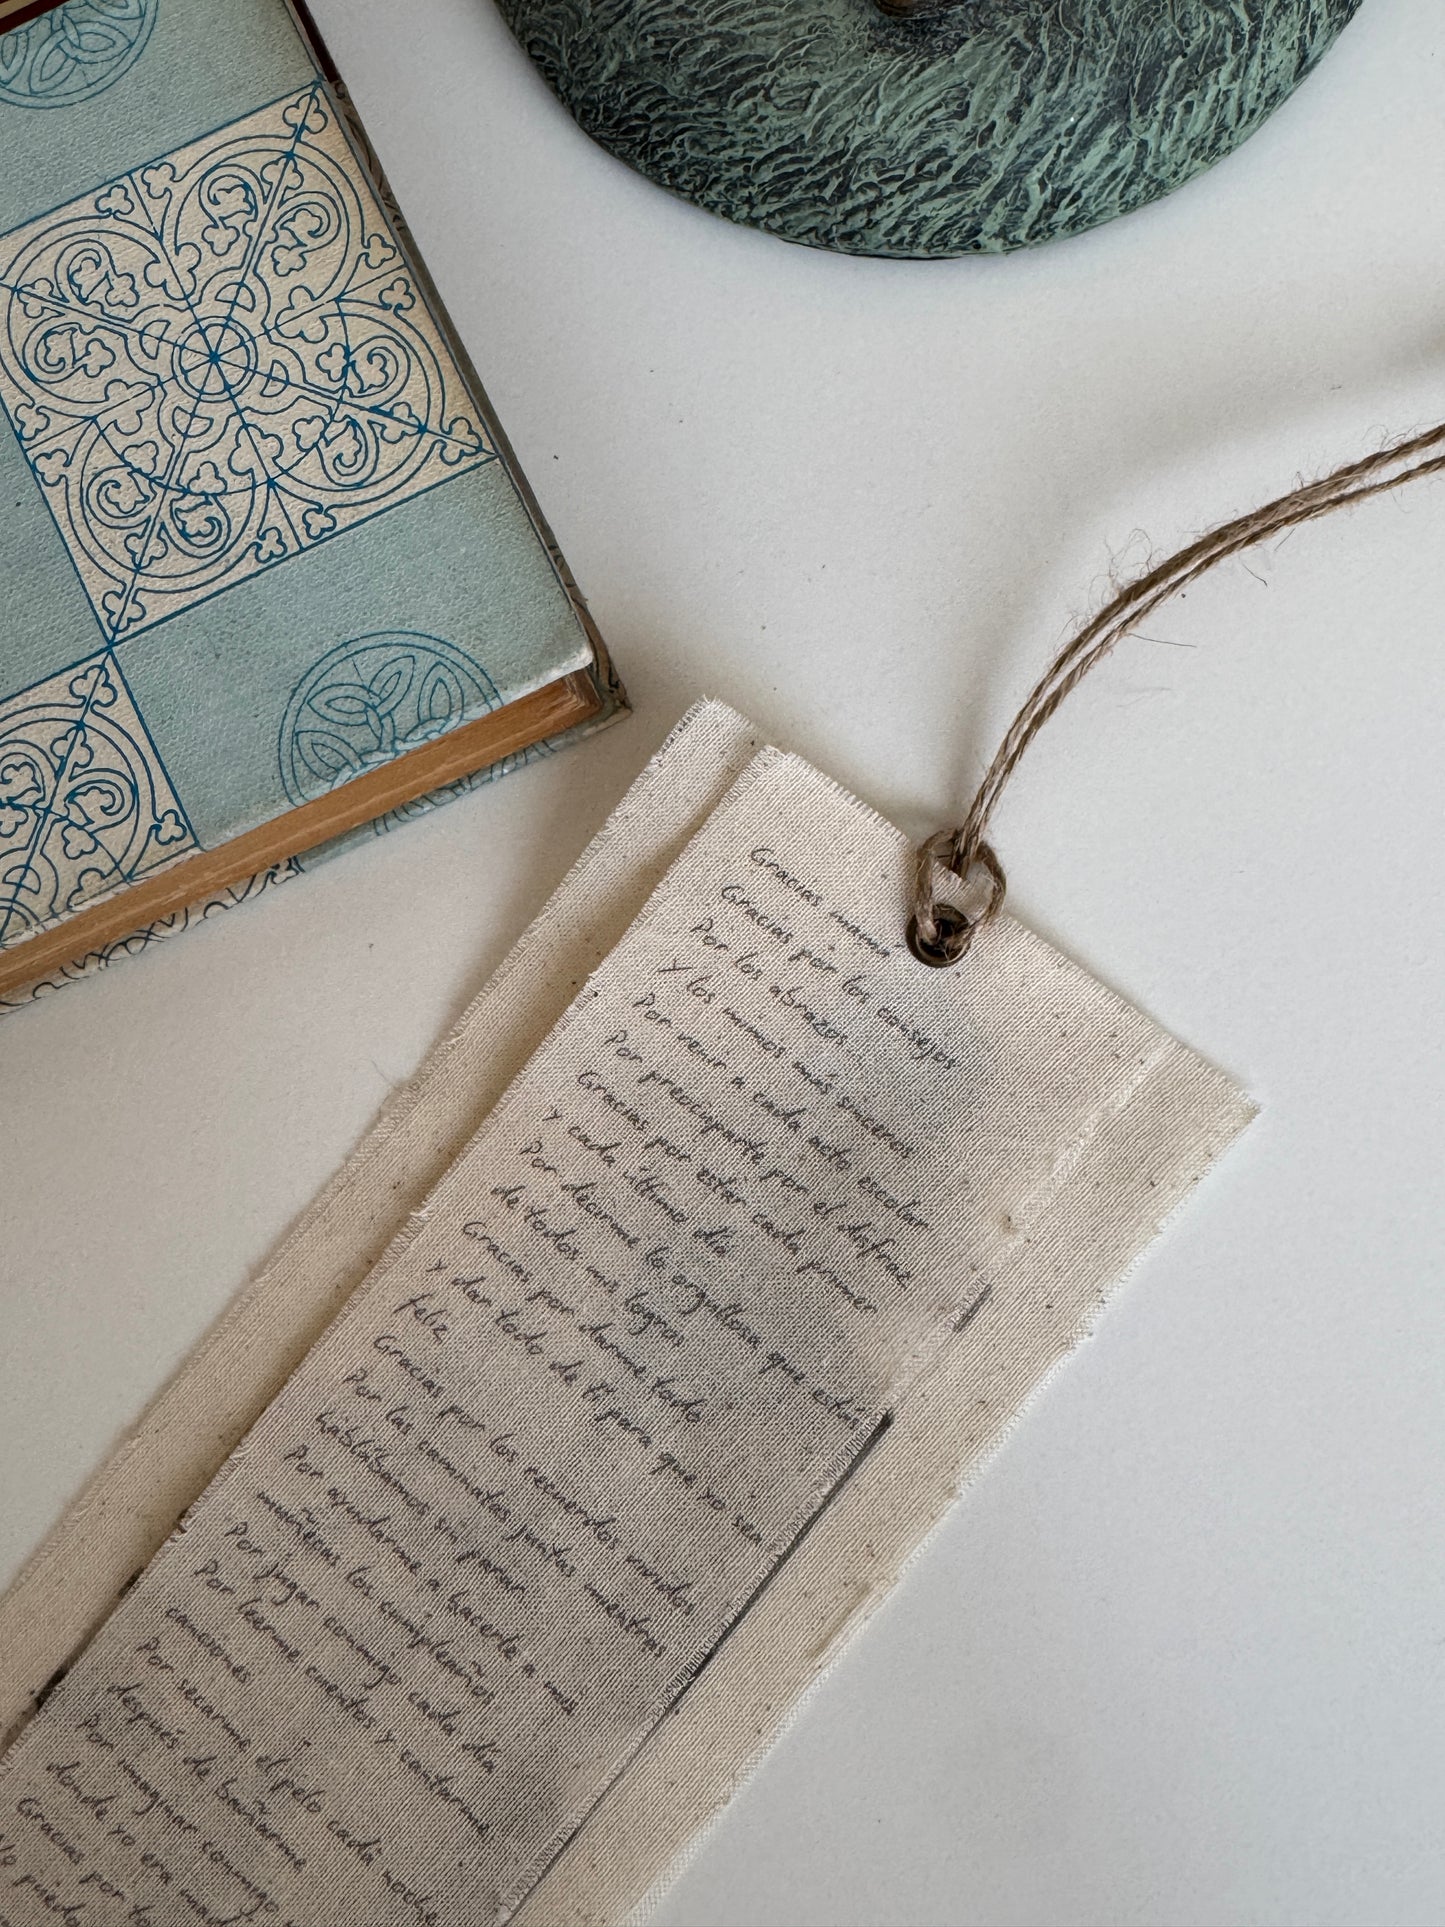 Gracias mamá
Gracias por los consejos
Por los abrazos
Y los mimos más sinceros
Por venir a cada acto escolar
Por preocuparte por el disfraz
Gracias por estar cada primer
y cada último día
Por decirme lo orgullosa que estás
de todos mis logros
Gracias por darme todo
y dar todo de ti para que yo sea
feliz
Gracias por los recuerdos vividos
Por las caminatas juntas mientras
hablábamos sin parar
Por ayudarme a hacerle a mis
muñecas los cumpleaños
Por jugar conmigo cada día
Por leerme cuentos y cantarme
canciones
Por secarme el pelo cada noche
después de bañarme
Por imaginar conmigo
donde yo era
Gracias por